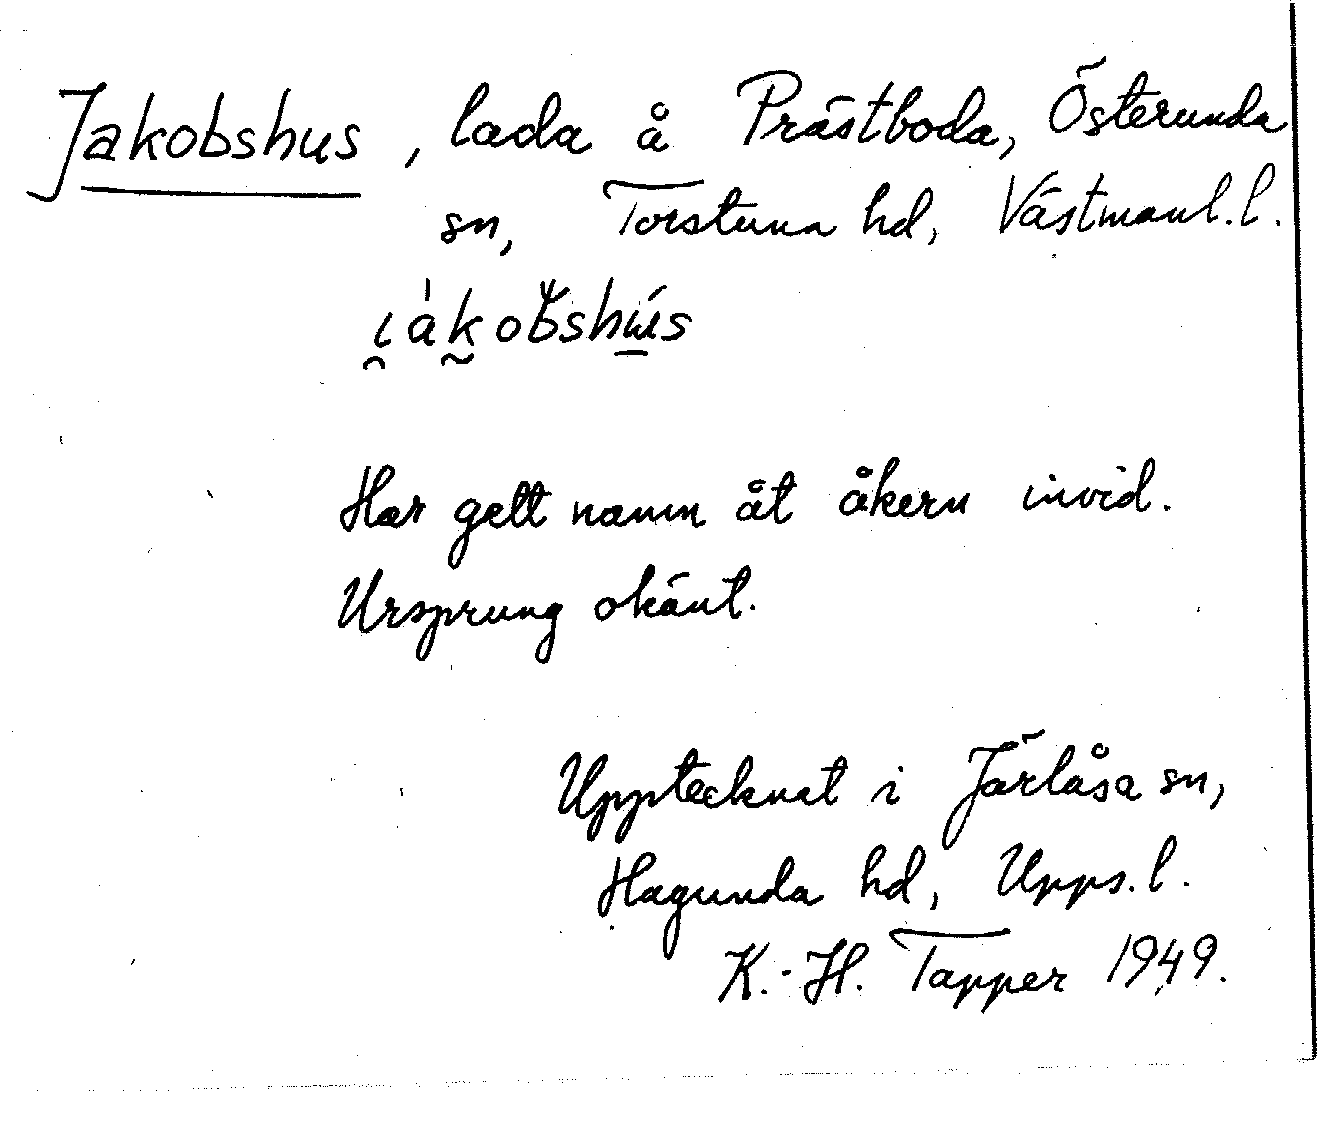 Jakobshus, lada å Prästboda, Österunda
sn, Torstuna hd, Västmanl. l.
Har gett namn åt åkern invid.
Ursprung okänt.
Upptecknat i Järlåsa sn,
Hagunda hd, Upps. l.
K.-H. Tapper 1949.